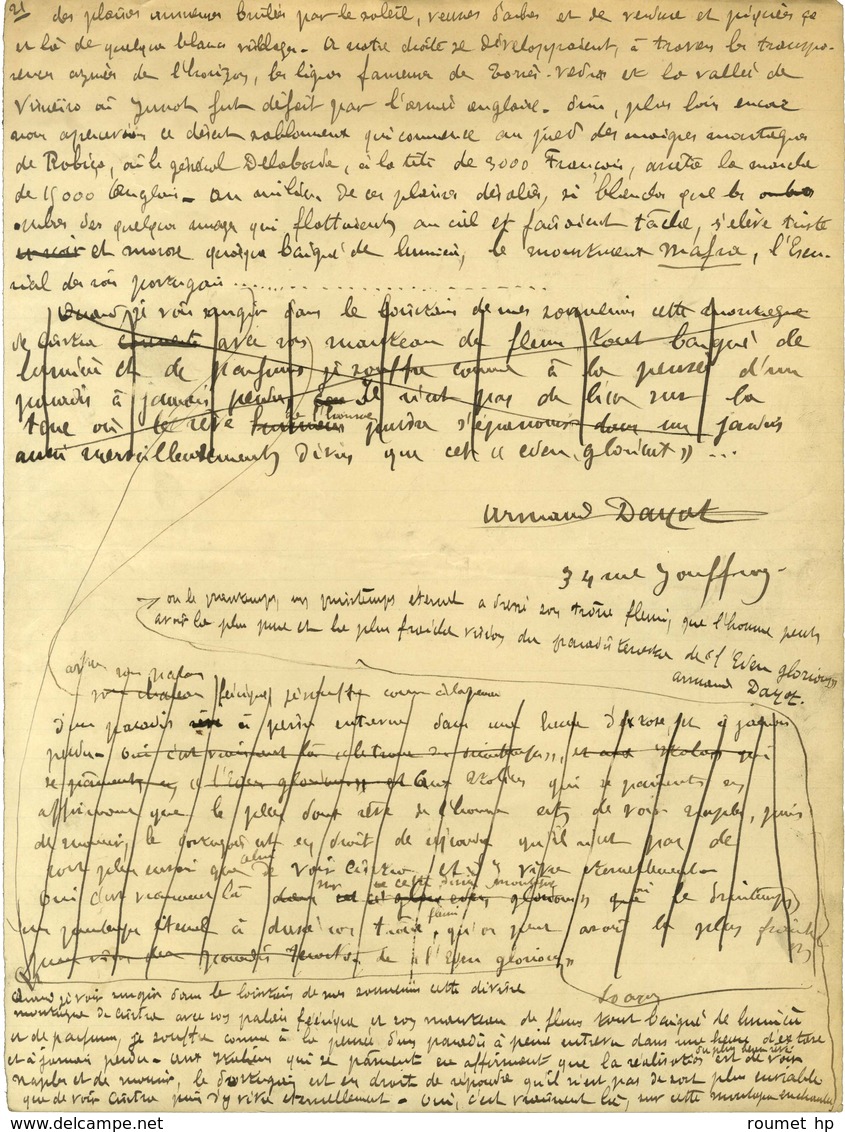 21 des plaines immenses brûlées par le soleil, veuves d'arbres et de verdure et piquées ça
et là de quelques blancs villages. A notre droite se développaient, à travers la transpa-
rence azurée de l'horizon, les lignes fameuses de Torrès-Vedras et la vallée de
Vimeiro où Junot fut défait par l'armée anglaise. Puis, plus loin encore
nous apercevions ce désert sablonneux qui commence au pied des maigres montagnes
de Roliça, où le général Delaborde, à la tête de 3000 Français, arrêta la marche
de 15000 Anglais. Au milieu de ces plaines désolées, si blanches que les ombres
ombres des quelques nuages qui flottaient au ciel y faisaient tache, s'élève triste
et morose quoique baigné de lumière, le monument Mafra, l'Escu-
rial des rois portugais ..............................
Quand je vois surgir dans le lointain de mes souvenirs cette montagne
de Cintra avec son manteau de fleurs tout baigné de
lumière et de parfums je souffre comme à la pensée d'un
paradis à jamais perdu Il n'est pas de lieu sur la
terre où le rêve de l'homme puisse s'épanouir dans un jardin
aussi merveilleusement divin que cet « eden glorieux » ...
Armand Dayot
34 rue Jouffroy.
où le printemps, un printemps éternel a dressé son trône fleuri, que l'homme peut
avoir la plus pure et la plus fraîche vision du paradis terrestre de « l'Eden glorieux »
Armand Dayot.
son palais
son château féerique, je souffre comme à la pensée
d'un paradis rêvé à peine entrevu dans une heure d'extase, et à jamais
perdu. Oui c'est vraiment là
se pâment « l'Eden glorieux » et aux Italiens qui se pâment en
affirmant que le plus doux rêve de l'homme est de voir Naples, puis
de mourir, le portugais est en droit de répondre qu'il n'est pas de
sort plus enviable que celui de voir Cintra et d'y vivre éternellement.
Oui c'est vraiment là dans sur cette divine montagne glorieux que le printemps
un printemps éternel à dressé son trône fleuri, qu'on peut avoir la plus fraîche
de « l'Eden glorieux »
Quand je vois surgir dans le lointain de mes souvenirs cette divine
montagne de Cintra avec son palais féerique et son manteau de fleurs tout baigné de lumière
et de parfums, je souffre comme à la pensée d'un paradis à peine entrevu dans une heure d'extase
et à jamais perdu. Aux Italiens qui se pâment en affirmant que la réalisation du plus doux rêve est de voir
Naples et de mourir, le Portugais est en droit de répondre qu'il n'est pas de sort plus enviable
que de voir Cintra puis d'y vivre éternellement. Oui, c'est vraiment là, sur cette montagne enchantée
roumet hp